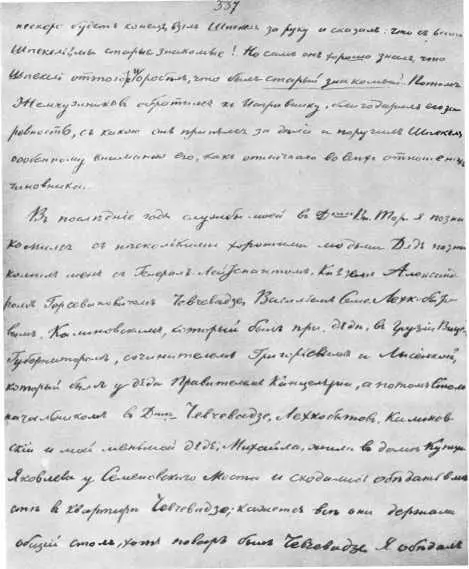 337
нескоро будетъ конецъ, взялъ Шпекля за руку и сказалъ: что съ
Шпеклемъ мы старые знакомые! Но самъ онъ хорошо зналъ, что
Шпекль оттого, что былъ старый знакомый. Потомъ
Жемчужниковъ обратился къ благодарилъ его за
ревность, съ какою онъ принялся за дѣла и поручилъ Шпекля
особенному вниманію его, какъ отличнаго во всѣхъ отношеніяхъ
чиновника.
Въ послѣдніе года службы моей въ Тор. я позна
комился съ нѣсколькими хорошими людьми. Дѣдъ позна
комилъ меня съ Генералъ Лейтенантомъ, Княземъ Александ
ромъ Герсевановичемъ Чевчевадзе, Василіемъ Сем. Легкобы
вымъ, Калиновскимъ, который былъ при дѣдѣ, въ Грузіи Вице
Губернаторомъ, сочинителемъ Григорьевымъ и
который былъ у дѣда Правителемъ Канцеляріи, а потомъ Столо
начальникомъ въ Чевчевадзе, Калинов
скій и мой меньшой дѣдъ, Михайла, жили въ домѣ Купца
Яковлева у Семеновскаго Моста и сходились обѣдать вмѣ
стѣ въ квартиру Чевчевадзе; кажется всѣ они держали
общій столъ, хотя поваръ былъ Чевчевадзе. Я обѣдалъ